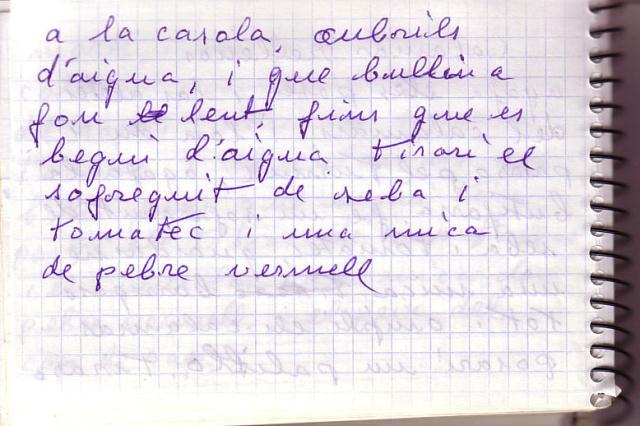 a la casola, cubrils
d'aigua, i que bullin a
foc lent, fins que es
begui d'aigua tirar i el
sofregit de seba i
tomatec i una mica
de pebre vermell